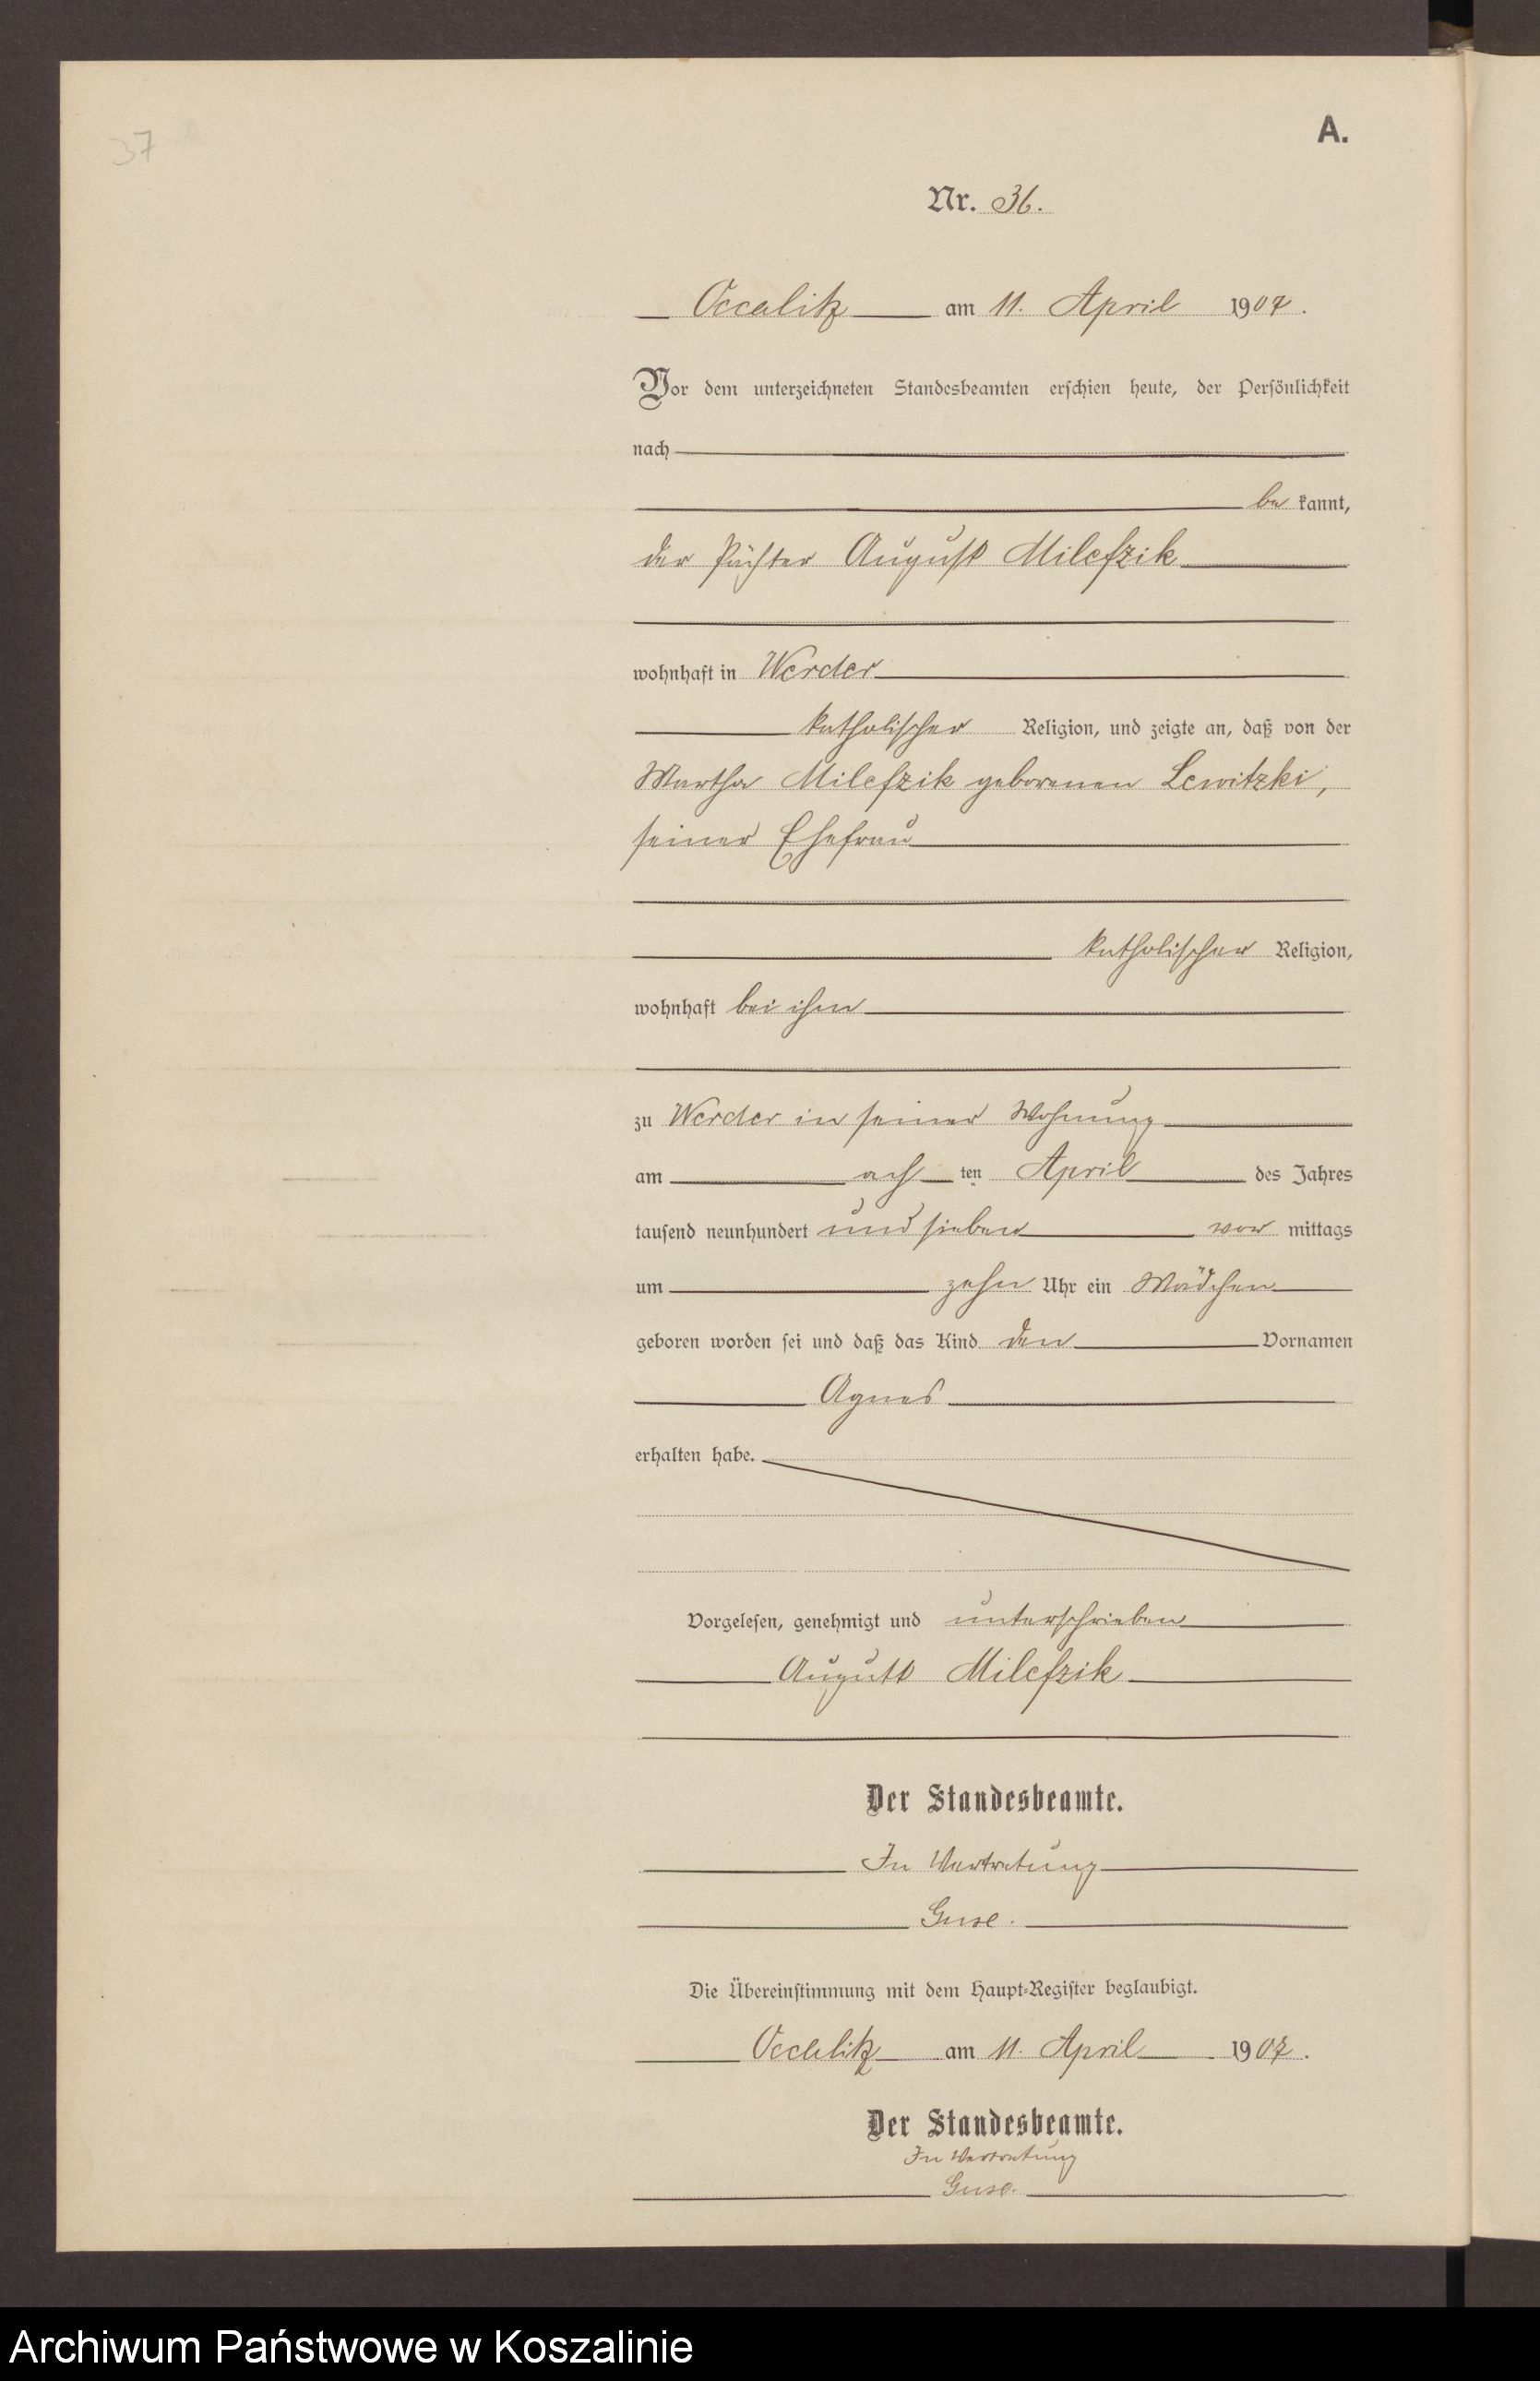 37
A.
Nr. 36.
Occalitz am 11. April 1907.
Vor dem unterzeichneten Standesbeamten erschien heute, der Persönlichkeit
nach
be kannt,
der Pächter August Milefzik
wohnhaft in Werder
katholischer Religion, und zeigte an, daß von der
Martha Milefzik geborenen Lewitzki,
seiner Ehefrau
katholischer Religion,
wohnhaft bei ihm
zu Werder in seiner Wohnung
am ach ten April des Jahres
tausend neunhundert und sieben vor mittags
um zehn Uhr ein Mädchen
geboren worden sei und daß das Kind den Vornamen
Agnes
erhalten habe.
Vorgelesen, genehmigt und unterschrieben
August Milefzik
Der Standesbeamte.
In Vertretung
Guse.
Die Übereinstimmung mit dem Haupt-Register beglaubigt.
Occalitz am 11. April 1907.
Der Standesbeamte.
In Vertretung
Guse.
Archiwum Państwowe w Koszalinie